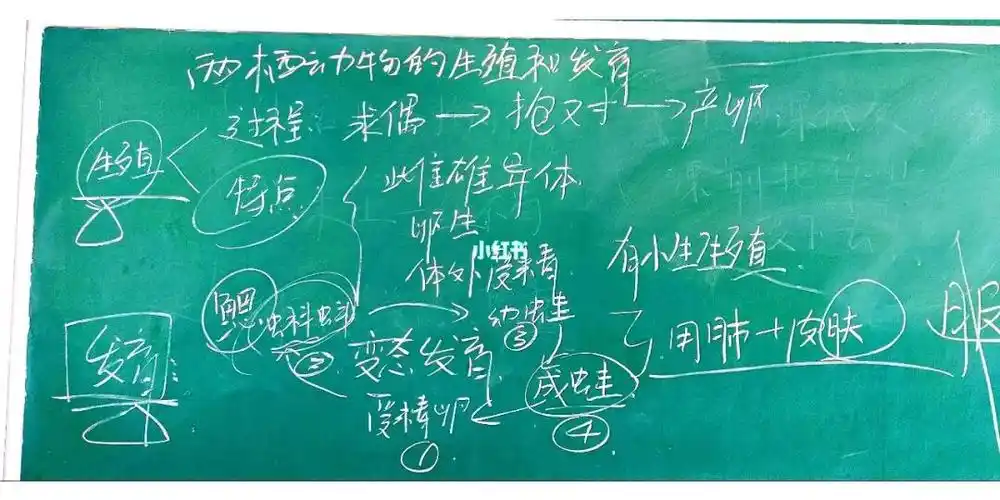 两栖动物的生殖和发育
生殖
过程: 求偶→抱对→产卵
特点
雌雄异体
卵生
体外受精
有性生殖
小红书
鳃
蝌蚪 ②
幼蛙 ③
变态发育
发育:
受精卵 ①
成蛙 ④
用肺+皮肤